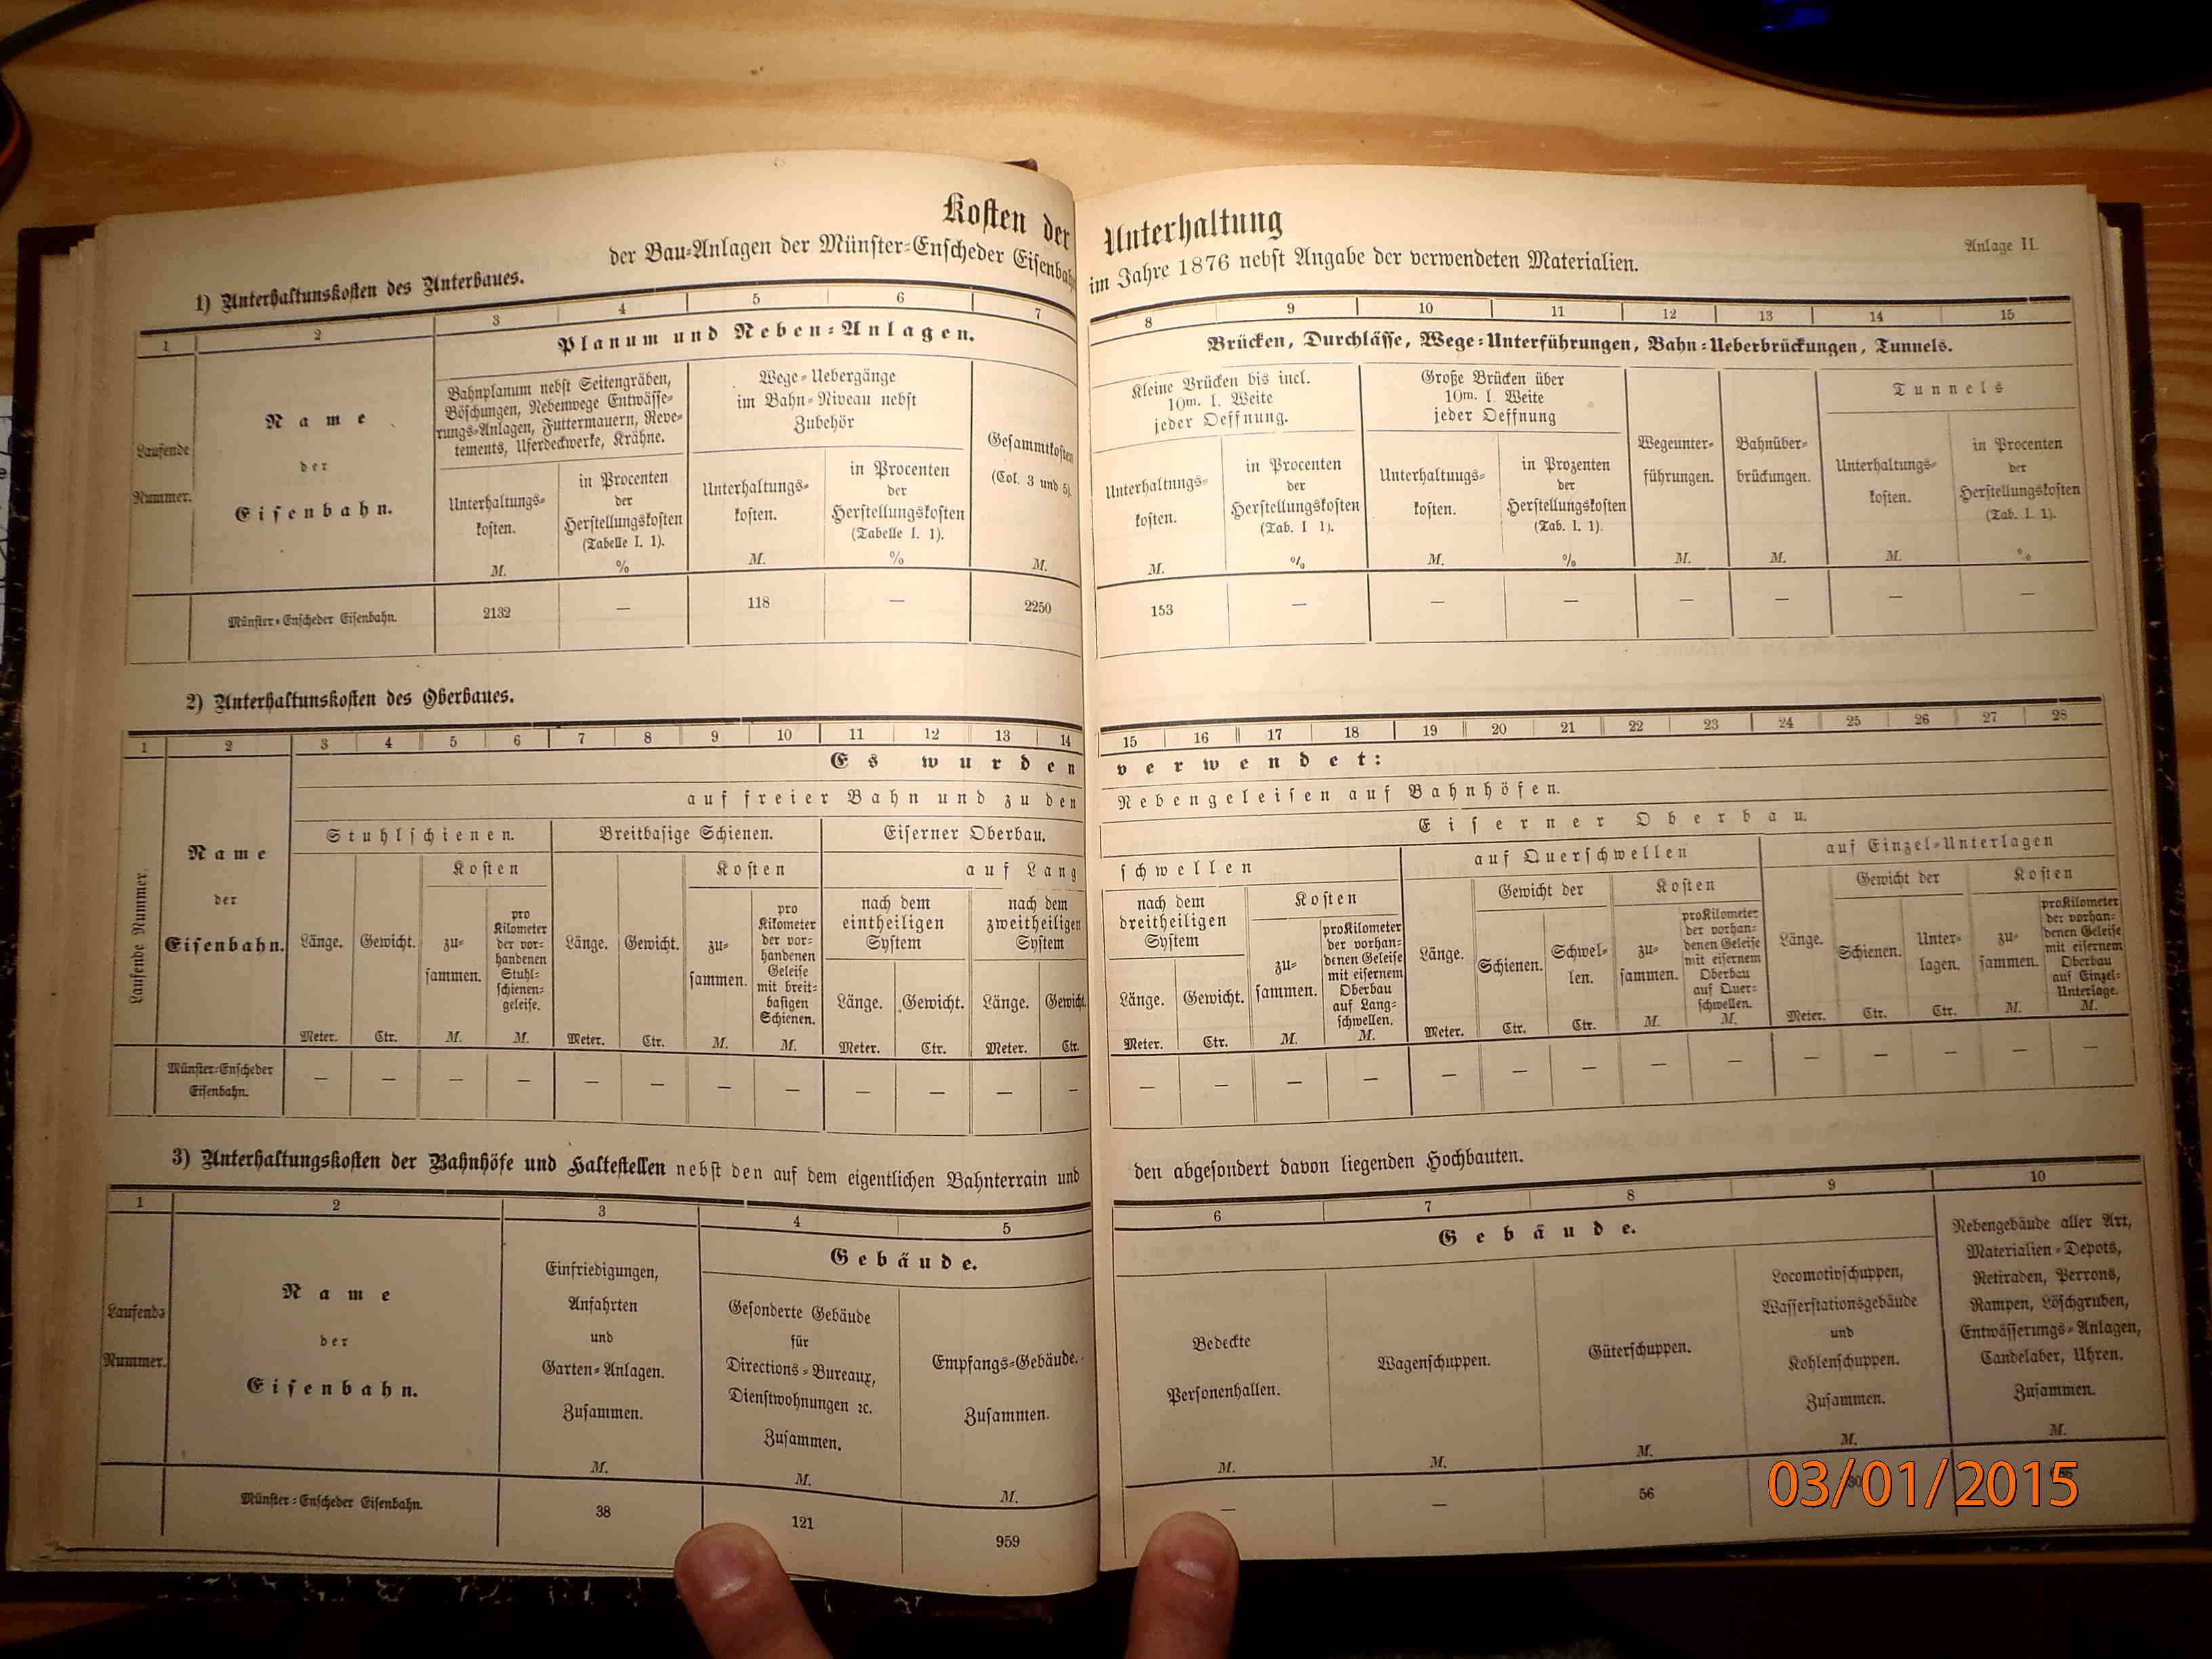 Kosten der Unterhaltung
der Bau-Anlagen der Münster-Enscheder Eisenbahn im Jahre 1876 nebst Angabe der verwendeten Materialien.
Anlage II.
1) Unterhaltunskosten des Unterbaues.
1 2 3 4 5 6 7 8 9 10 11 12 13 14 15
Laufende
Nummer.
Name
der
Eisenbahn.
Planum und Neben-Anlagen.
Bahnplanum nebst Seitengräben,
Böschungen, Nebenwege Entwässe-
rungs-Anlagen, Futtermauern, Reve-
tements, Uferdeckwerke, Krähne.
Unterhaltungs-
kosten.
M.
in Procenten
der
Herstellungskosten
(Tabelle I. 1).
%
Wege-Uebergänge
im Bahn-Niveau nebst
Zubehör
Unterhaltungs-
kosten.
M.
in Procenten
der
Herstellungskosten
(Tabelle I. 1).
%
Gesammtkosten
(Col. 3 und 5).
M.
Brücken, Durchlässe, Wege-Unterführungen, Bahn-Ueberbrückungen, Tunnels.
Kleine Brücken bis incl.
10m. l. Weite
jeder Oeffnung.
Unterhaltnngs-
kosten.
M.
in Procenten
der
Herstellungskosten
(Tab. I 1).
%
Große Brücken über
10m. l. Weite
jeder Oeffnung
Unterhaltuugs-
kosten.
M.
in Prozenten
der
Herstellungskosten
(Tab. I. 1).
%
Wegeunter-
führungen.
M.
Bahnüber-
brückungen.
M.
Tunnels
Unterhaltungs-
kosten.
M.
in Procenten
der
Herstellungskosten
(Tab. I. 1).
%
Münster-Enscheder Eisenbahn. 2132 — 118 — 2250 153 — — — — — — —
2) Unterhaltunskosten des Oberbaues.
1 2 3 4 5 6 7 8 9 10 11 12 13 14 15 16 17 18 19 20 21 22 23 24 25 26 27 28
Laufende Nummer.
Name
der
Eisenbahn.
Es wurden verwendet:
auf freier Bahn und zu den Nebengeleisen auf Bahnhöfen.
Stuhlschienen.
Länge.
Meter.
Gewicht.
Ctr.
Kosten
zu-
sammen.
M.
pro
Kilometer
der vor-
handenen
Stuhl-
schienen-
geleise.
M.
Breitbasige Schienen.
Länge.
Meter.
Gewicht.
Ctr.
Kosten
zu-
sammen.
M.
pro
Kilometer
der vor-
handenen
Geleise
mit breit-
basigen
Schienen.
M.
Eiserner Oberbau.
Eiserner Oberbau.
auf Lang
schwellen
nach dem
eintheiligen
System
Länge.
Meter.
Gewicht.
Ctr.
nach dem
zweitheiligen
System
Länge.
Meter.
Gewicht.
Ctr.
nach dem
dreitheiligen
System
Länge.
Meter.
Gewicht.
Ctr.
Kosten
zu-
sammen.
M.
pro Kilometer
der vorhan-
denen Geleise
mit eisernem
Oberbau
auf Lang-
schwellen.
M.
auf Querschwellen
Länge.
Meter.
Gewicht der
Schienen.
Ctr.
Schwel-
len.
Ctr.
Kosten
zu-
sammen.
M.
pro Kilometer
der vorhan-
denen Geleise
mit eisernem
Oberbau
auf Quer-
schwellen.
M.
auf Einzel-Unterlagen
Länge.
Meter.
Gewicht der
Schienen.
Ctr.
Unter-
lagen.
Ctr.
Kosten
zu-
sammen.
M.
pro Kilometer
der vorhan-
denen Geleise
mit eisernem
Oberbau
auf Einzel-
Unterlage.
M.
Münster-Enscheder
Eisenbahn.
— — — — — — — — — — — — — — — — — — — — — — — — — —
3) Unterhaltungskosten der Bahnhöfe und Haltestellen nebst den auf dem eigentlichen Bahnterrain und den abgesondert davon liegenden Hochbauten.
1 2 3 4 5 6 7 8 9 10
Laufende
Nummer.
Name
der
Eisenbahn.
Einfriedigungen,
Anfahrten
und
Garten-Anlagen.
Zusammen.
M.
Gebäude.
Gesonderte Gebäude
für
Directions-Bureaux,
Dienstwohnungen ꝛc.
Zusammen.
M.
Empfangs-Gebäude.
Zusammen.
M.
Gebäude.
Bedeckte
Personenhallen.
M.
Wagenschuppen.
M.
Güterschuppen.
M.
Locomotivschuppen,
Wasserstationsgebäude
und
Kohlenschuppen.
Zusammen.
M.
Nebengebäude aller Art,
Materialien-Depots,
Retiraden, Perrons,
Rampen, Löschgruben,
Entwässerungs-Anlagen,
Candelaber, Uhren.
Zusammen.
M.
Münster-Enscheder Eisenbahn. 38 121 959 — — 56
03/01/2015